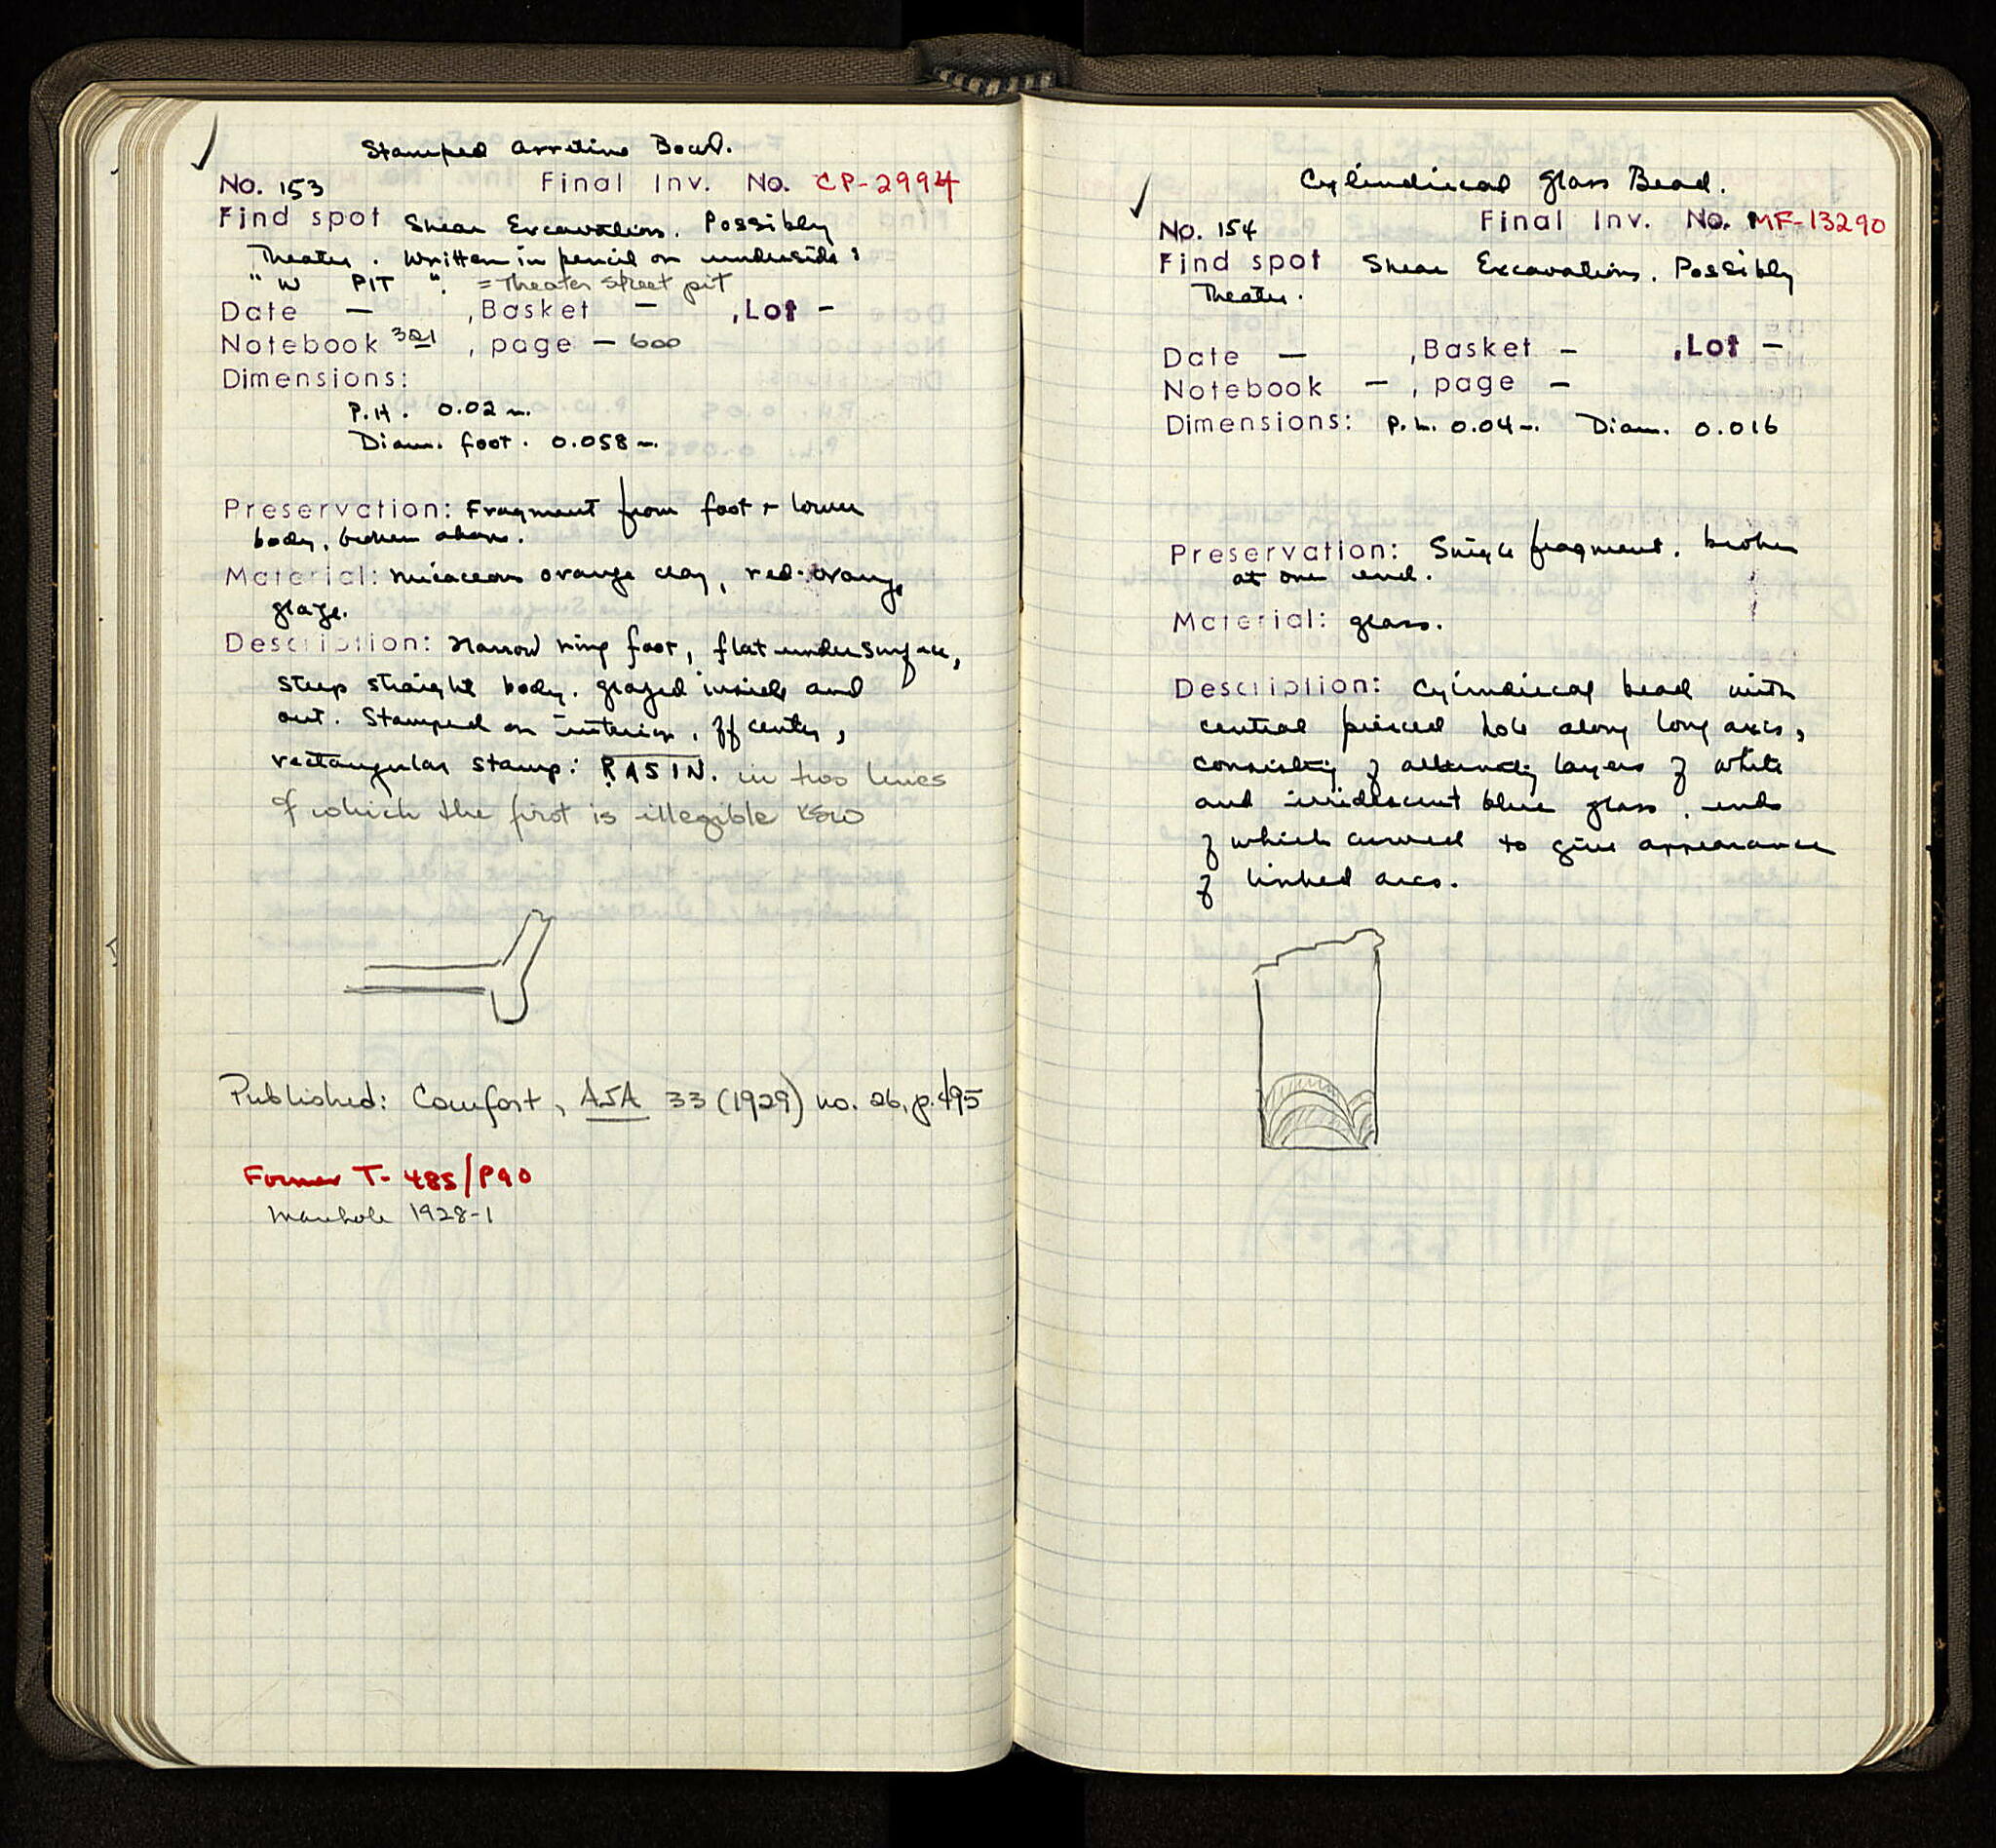 Stamped Arretine Bowl.
No. 153 Final Inv. No. CP-2994
Find spot Shear Excavations. Possibly
Theater. Written in pencil on underside:
" W PIT ". = Theater Street pit
Date — , Basket — , Lot -
Notebook 321 , page - 600
Dimensions:
P.H. 0.02 m.
Diam. foot. 0.058 m.
Preservation: Fragment from foot + lower
body, broken above.
Material: micaceous orange clay, red-orange
glaze.
Description: Narrow ring foot, flat undersurface,
steep straight body. glazed inside and
out. Stamped on interior, off center,
rectangular stamp: RASIN. in two lines
of which the first is illegible KSW
Published: Comfort, AJA 33 (1929) no. 26, p. 495
Former T- 485/P90
Manhole 1928-1
Cylindrical Glass Bead.
No. 154 Final Inv. No. MF-13290
Find spot Shear Excavations. Possibly
Theater.
Date — , Basket - , Lot -
Notebook - , page -
Dimensions: P.L. 0.04 m. Diam. 0.016
Preservation: Single fragment. broken
at one end.
Material: glass.
Description: Cylindrical bead with
central pierced hole along long axis,
consisting of alternating layers of white
and irridescent blue glass, ends
of which curved to give appearance
of linked arcs.